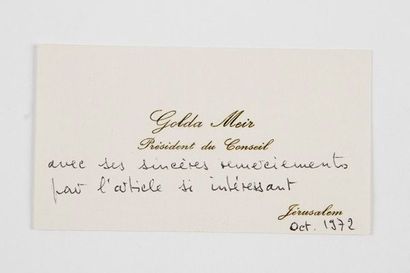 Golda Meir
Président du Conseil
avec ses sincères remerciements
pour l'article si intéressant
Jérusalem
Oct. 1972